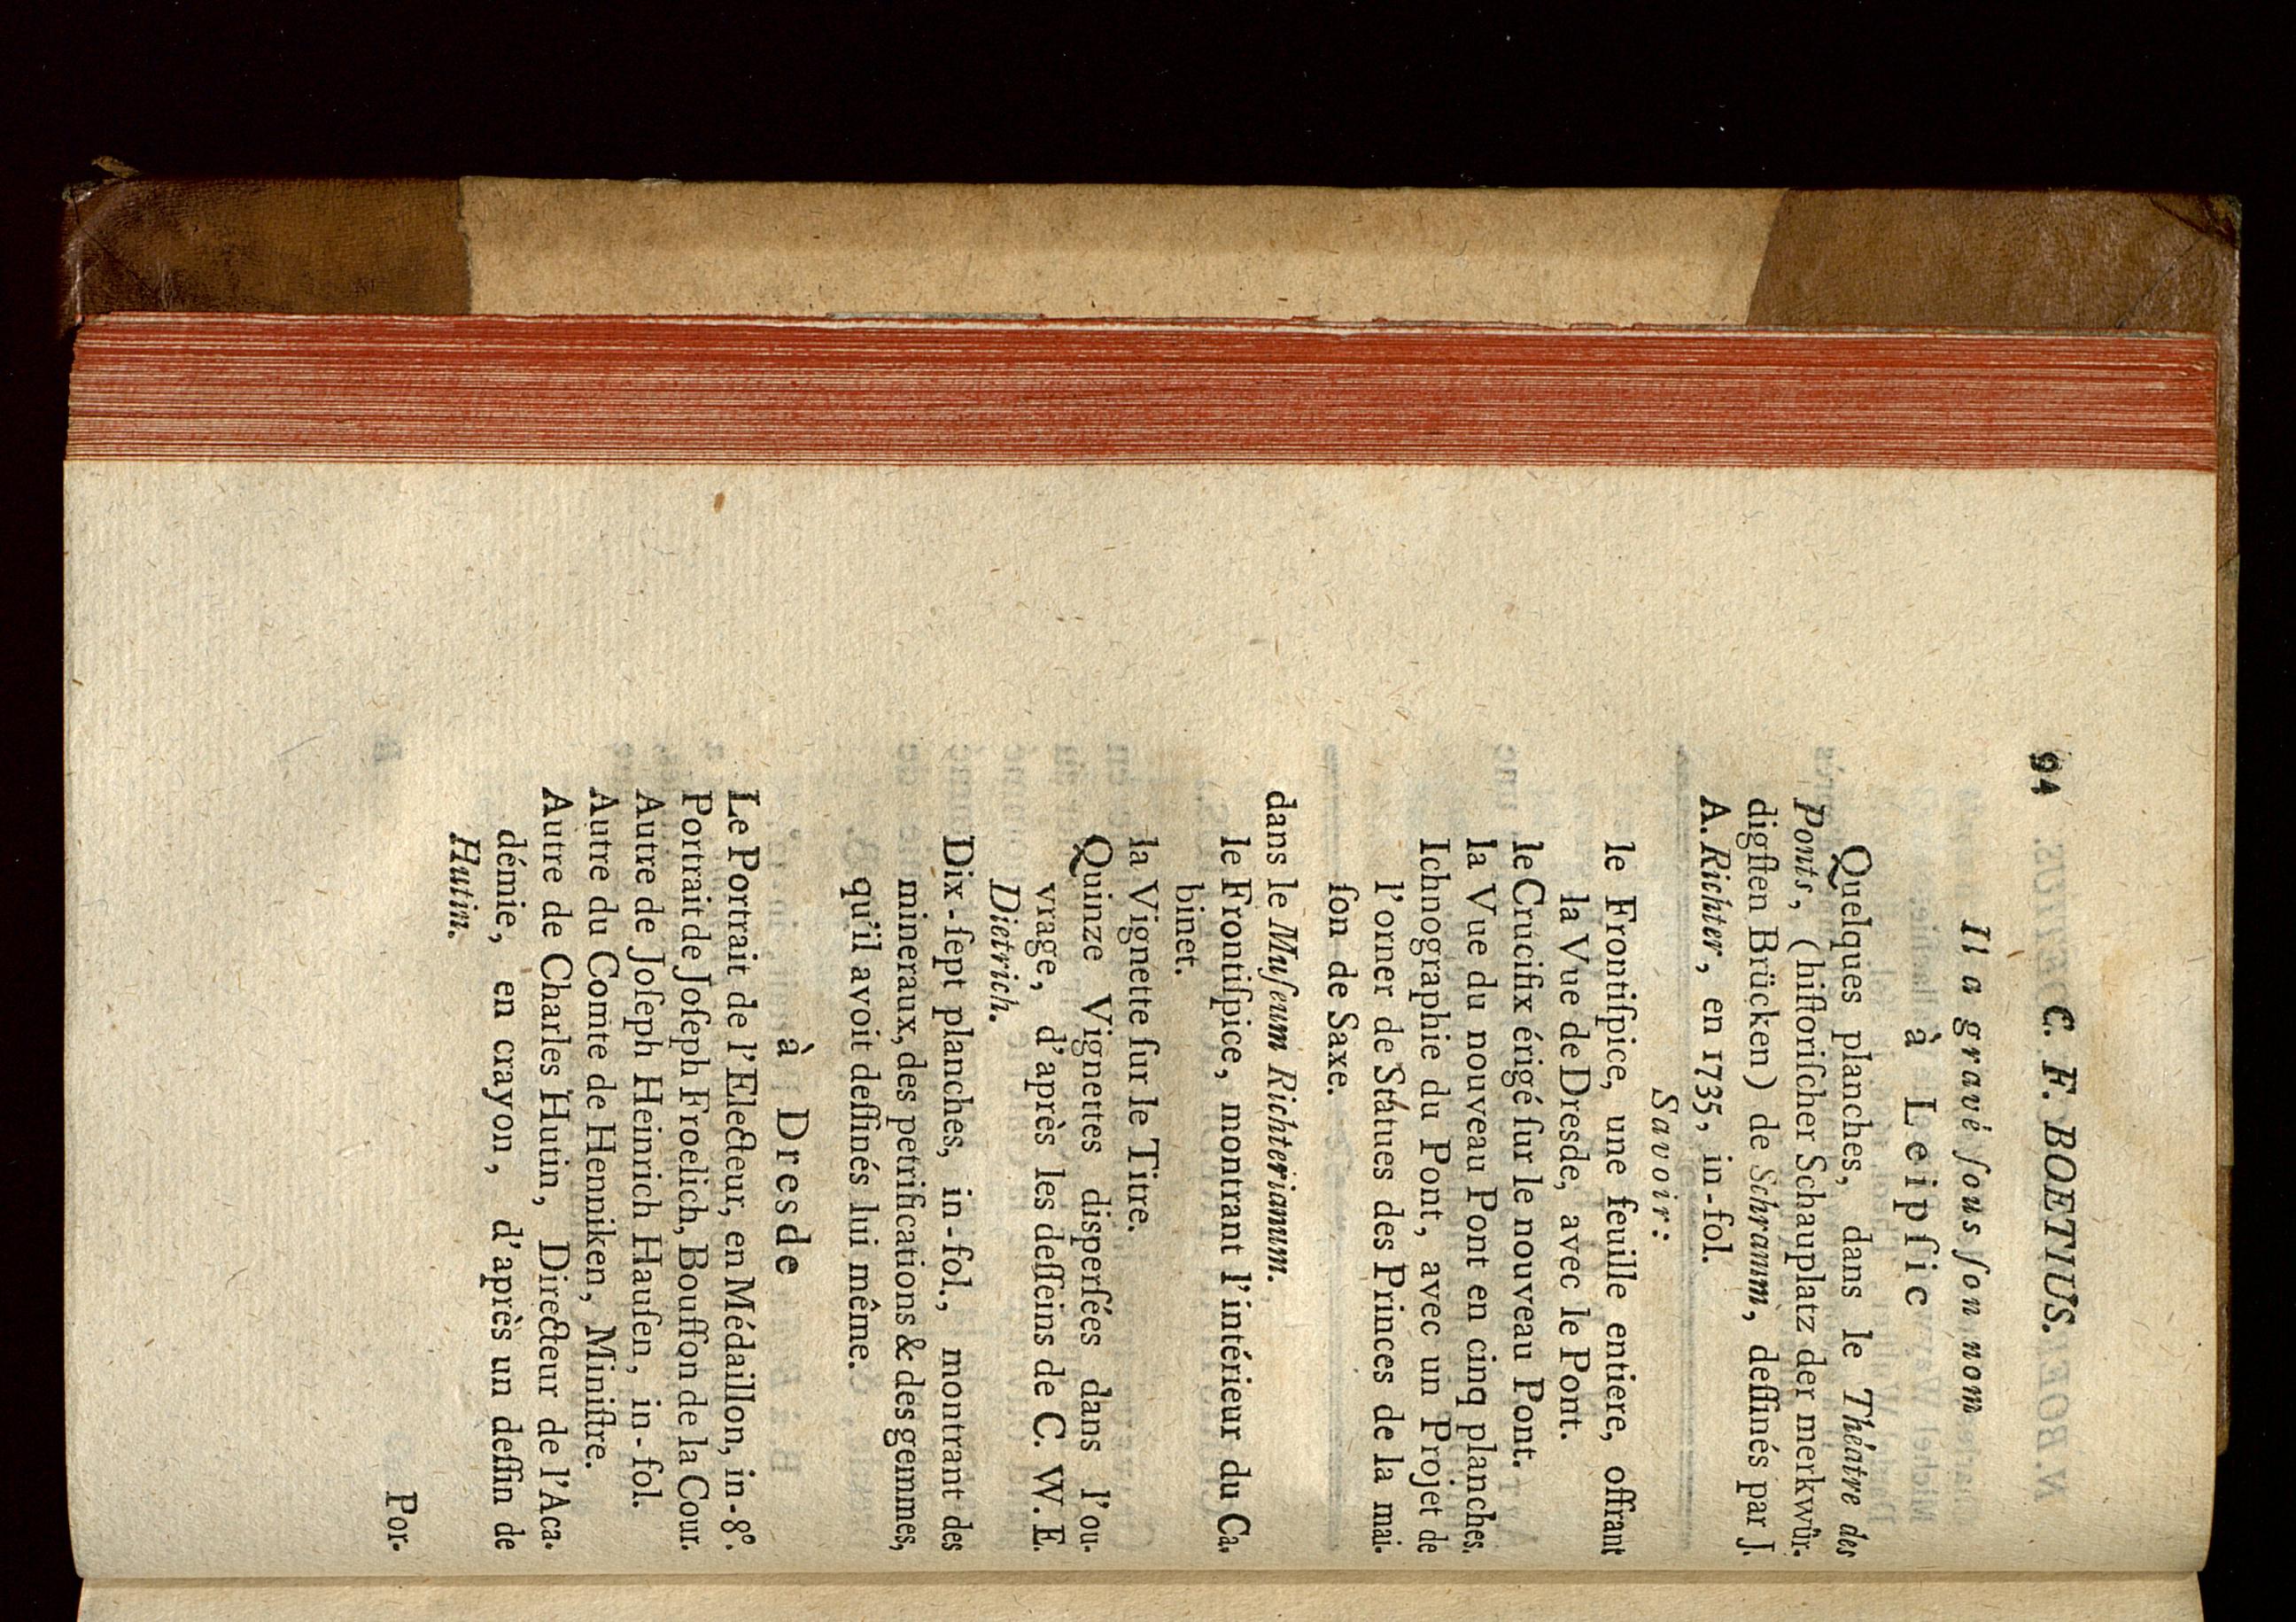 94 C. F. BOETIUS.
Il a gravé ſous ſon nom
à Leipſic
Quelques planches, dans le Théatre des
Ponts, (hiſtoriſcher Schauplatz der merkwür-
digſten Brücken) de Schramm, deſſinés par J.
A. Richter, en 1735, in-fol.
Savoir:
le Frontiſpice, une feuille entiere, offrant
la Vue de Dresde, avec le Pont.
le Crucifix érigé ſur le nouveau Pont.
la Vue du nouveau Pont en cinq planches.
Ichnographie du Pont, avec un Projet de
l'orner de Statues des Princes de la mai-
ſon de Saxe.
dans le Muſeum Richterianum.
le Frontiſpice, montrant l'intérieur du Ca-
binet.
la Vignette ſur le Titre.
Quinze Vignettes disperſées dans l'ou-
vrage, d'après les deſſeins de C. W. E.
Dietrich.
Dix-ſept planches, in-fol., montrant des
mineraux, des petrifications & des gemmes,
qu'il avoit deſſinés lui même.
à Dresde
Le Portrait de l'Electeur, en Médaillon, in-8°.
Portrait de Joſeph Froelich, Bouffon de la Cour.
Autre de Joſeph Heinrich Hauſen, in-fol.
Autre du Comte de Henniken, Miniſtre.
Autre de Charles Hutin, Directeur de l'Aca-
démie, en crayon, d'après un deſſin de
Hutin.
Por-